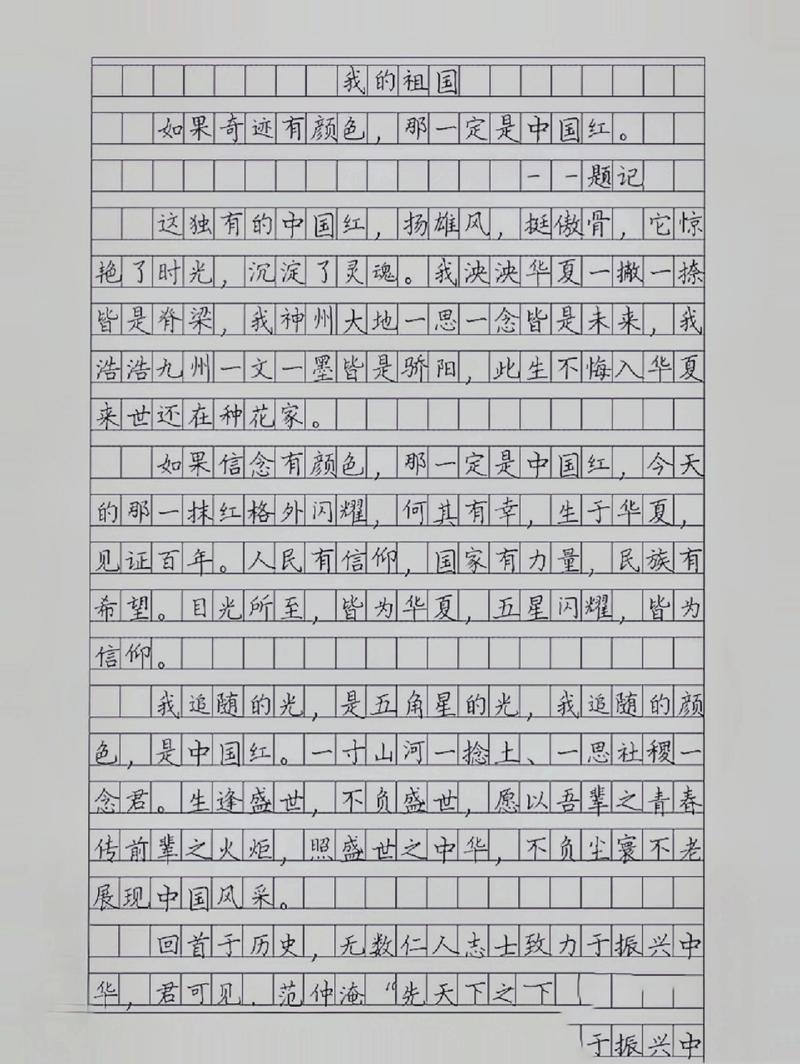 我的祖国
如果奇迹有颜色，那一定是中国红。
——题记
这独有的中国红，扬雄风，挺傲骨，它惊
艳了时光，沉淀了灵魂。我泱泱华夏一撇一捺
皆是脊梁，我神州大地一思一念皆是未来，我
浩浩九州一文一墨皆是骄阳，此生不悔入华夏
来世还在种花家。
如果信念有颜色，那一定是中国红，今天
的那一抹红格外闪耀，何其有幸，生于华夏，
见证百年。人民有信仰，国家有力量，民族有
希望。目光所至，皆为华夏，五星闪耀，皆为
信仰。
我追随的光，是五角星的光，我追随的颜
色，是中国红。一寸山河一捻土、一思社稷一
念君。生逢盛世，不负盛世，愿以吾辈之青春
传前辈之火炬，照盛世之中华，不负尘寰不老
展现中国风采。
回首于历史，无数仁人志士致力于振兴中
华，君可见.范仲淹“先天下之下
于振兴中